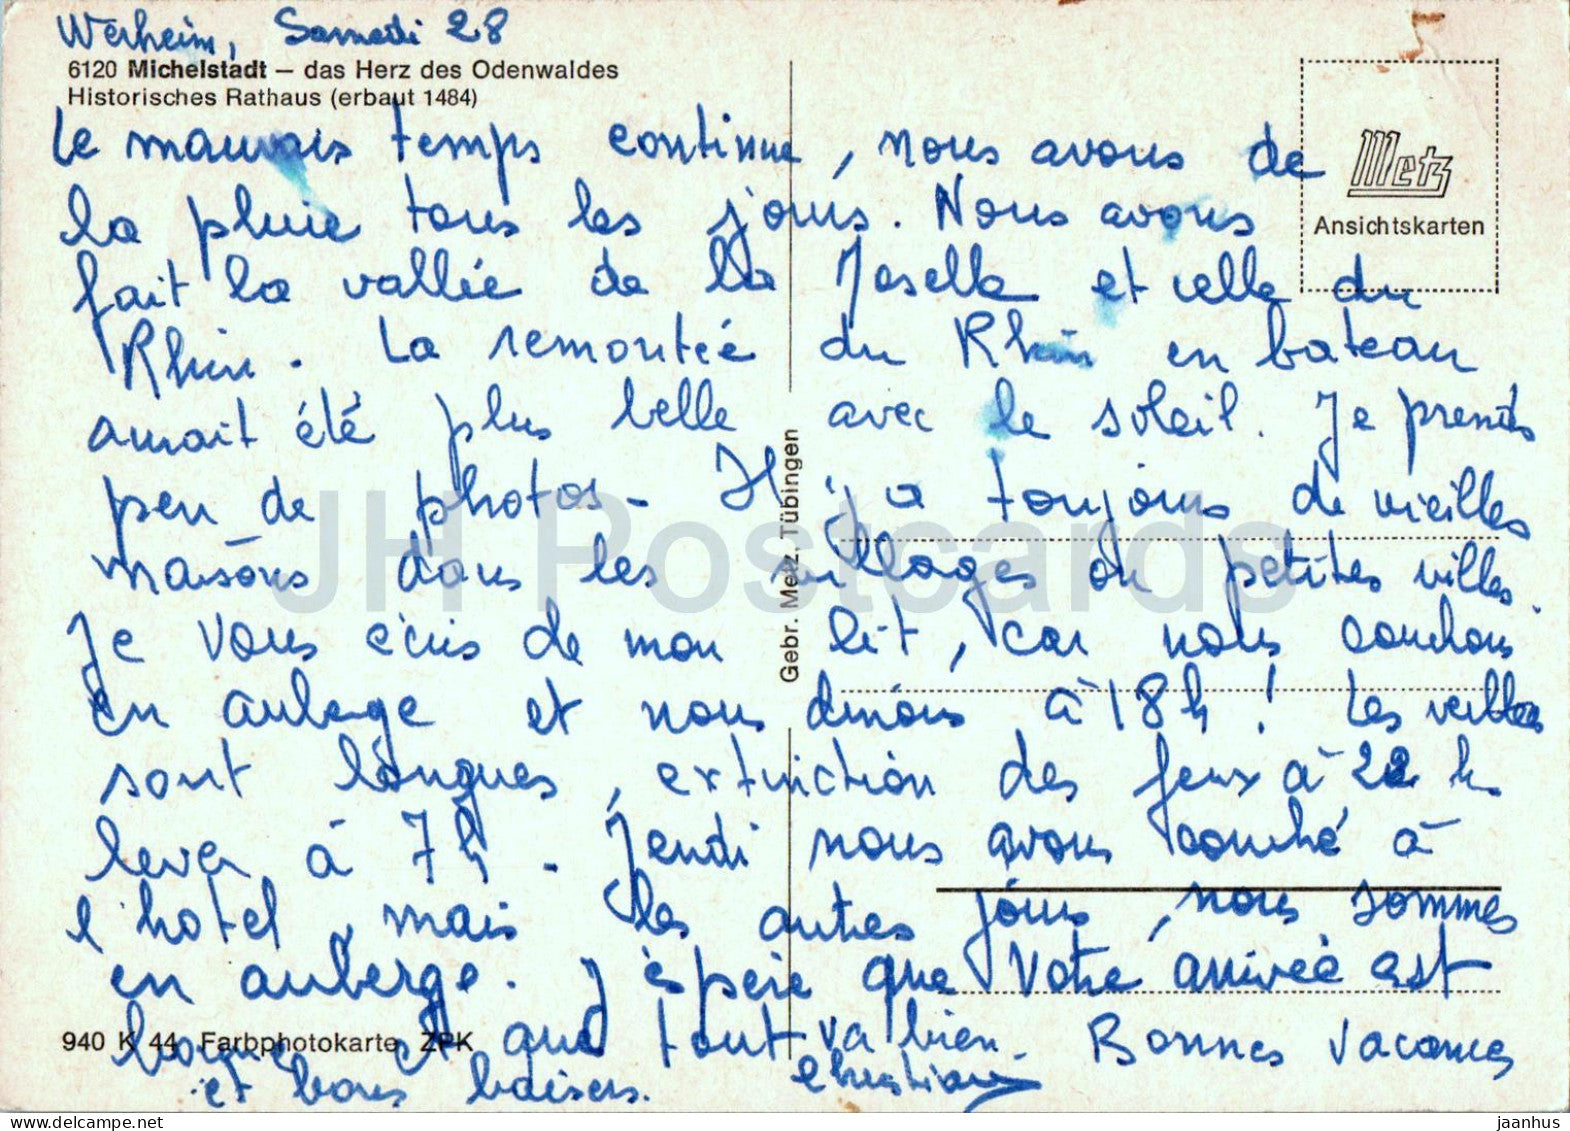 Werheim, Samedi 28
6120 Michelstadt – das Herz des Odenwaldes
Historisches Rathaus (erbaut 1484)
Metz
Ansichtskarten
Le mauvais temps continue, nous avons de
la pluie tous les jours. Nous avons
fait la vallée de la Moselle et celle du
Rhin. La remontée du Rhin en bateau
aurait été plus belle avec le soleil. Je prends
peu de photos. Il y a toujours de vieilles
maisons dans les villages ou petites villes.
Je vous écris de mon lit, car nous couchons
en auberge et nous dinons à 18h ! Les veillées
sont longues, extinction des feux à 22 h
lever à 7h. Jeudi nous avons couché à
l'hotel, mais les autres jours, nous sommes
en auberge. J'espère que Votre arrivée est
et que tout va bien. Bonnes Vacances
et bons baisers. Christiane
940 K 44 Farbphotokarte ZPK
Gebr. Metz, Tübingen
JH Postcards
jaanhus
delcampe.net